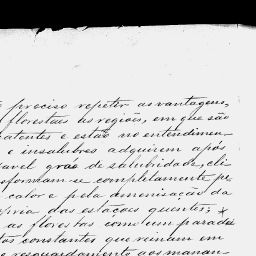 preciso repetir as vantagens,
florestaes as regiões, em que são
patentes e estão no entendimen-
e insalubres adquirem após
avel gráo de salubridade, cli-
sformam-se completamente pe
calor e pela demenisação da
opria das estações quentes; *
as florestas como um paradei
tos constantes que reinam em
e resguardamento aos manan-